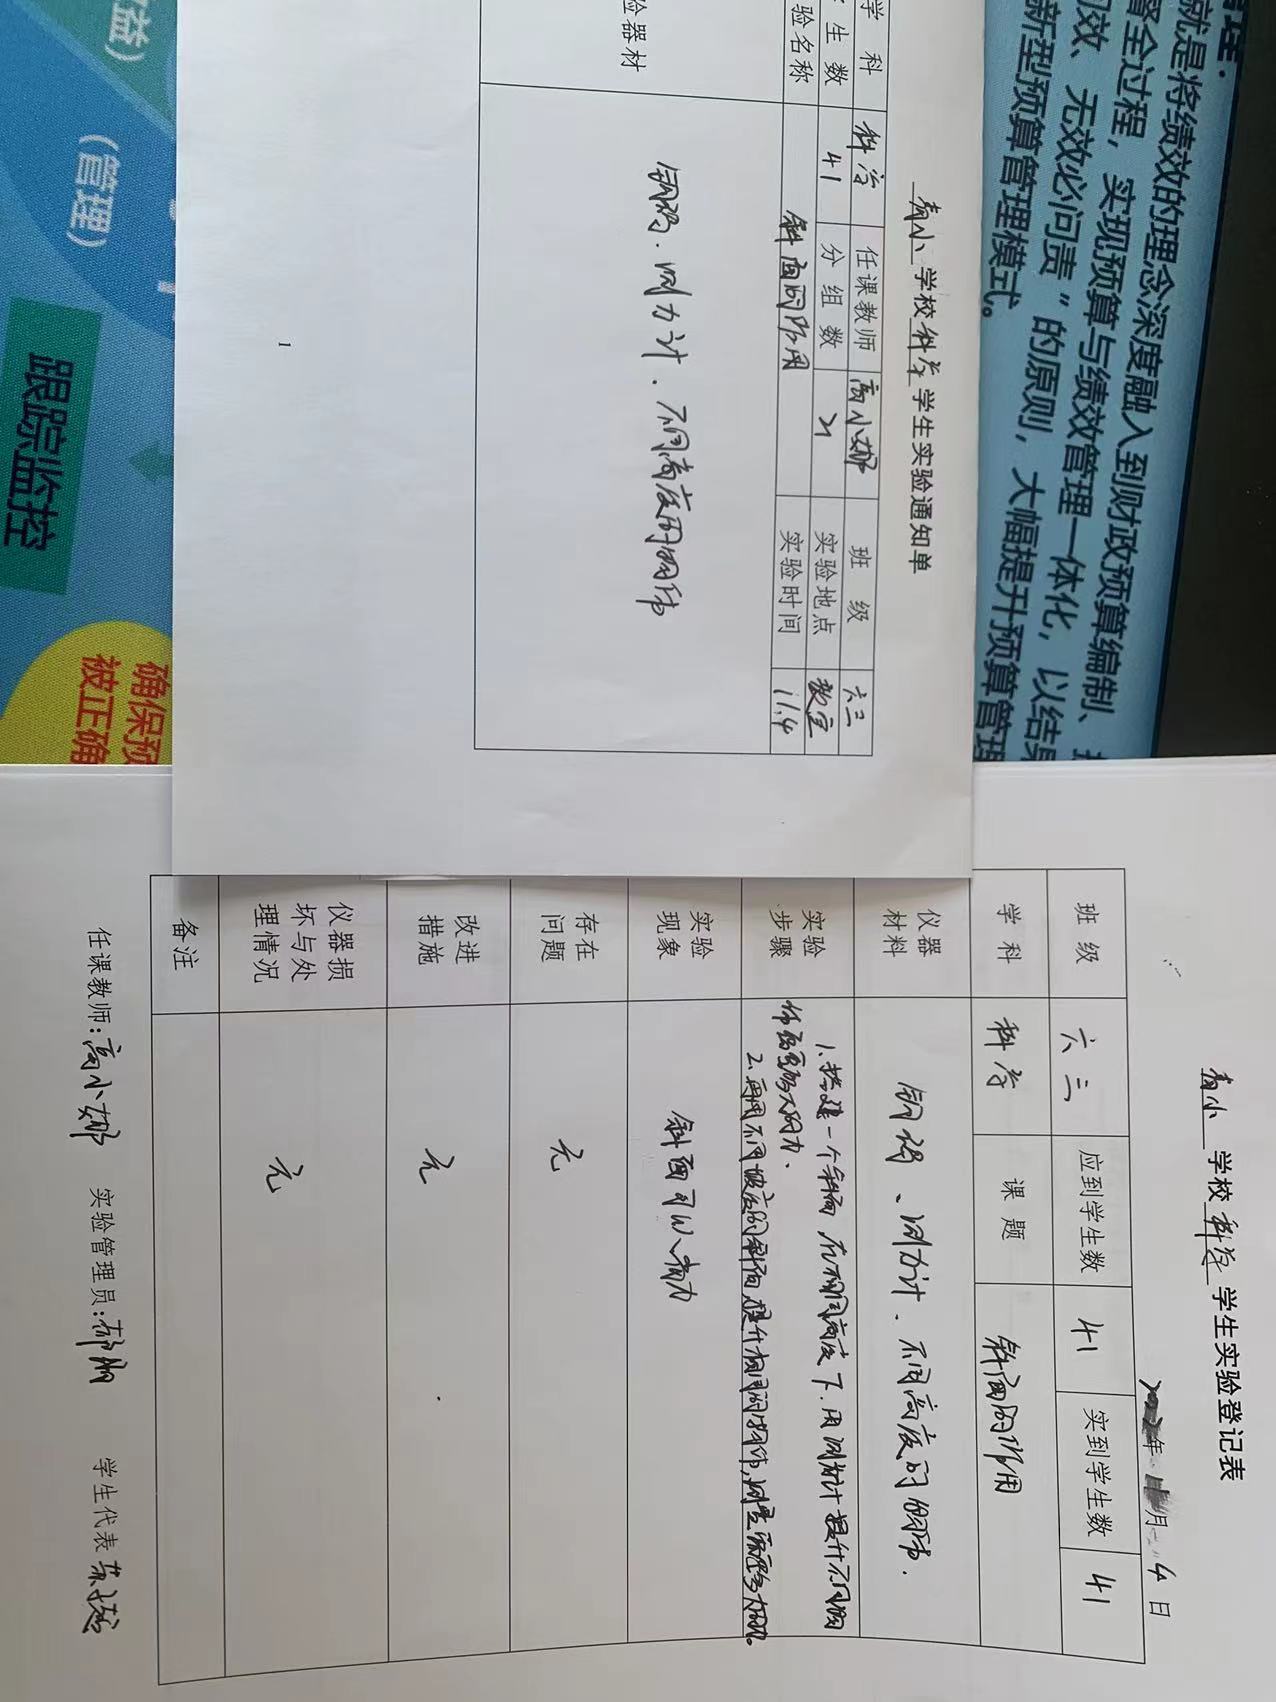 就是将绩效的理念深度融入到财政预算编制、
督全过程，实现预算与绩效管理一体化，以结果
效、无效必问责"的原则，大幅提升预算管理
新型预算管理模式。
益）
（管理）
跟踪监控
确保预
被正确
学校科学学生实验通知单
学 科 科学 任课教师 高小娜 班 级 六三
生 数 41 分组数 21 实验地点 教室
验名称 斜面的作用 实验时间 11.4
验器材 钩码．测力计．不同高度的物体
1
学校科学学生实验登记表
年 月 4日
班 级 六三 应到学生数 41 实到学生数 41
学 科 科学 课 题 斜面的作用
仪器
材料
钩码、测力计．不同高度的物体．
实验
步骤
1.搭建一个斜面，在相同高度下．用测力计提升不同物
体需要多大的力．
2.再用不同坡度的斜面，提升相同的物体，测量需要多大的力。
实验
现象
斜面可以省力
存在
问题
无
改进
措施
无
仪器损
坏与处
理情况
无
备注
任课教师：高小娜 实验管理员： 学生代表